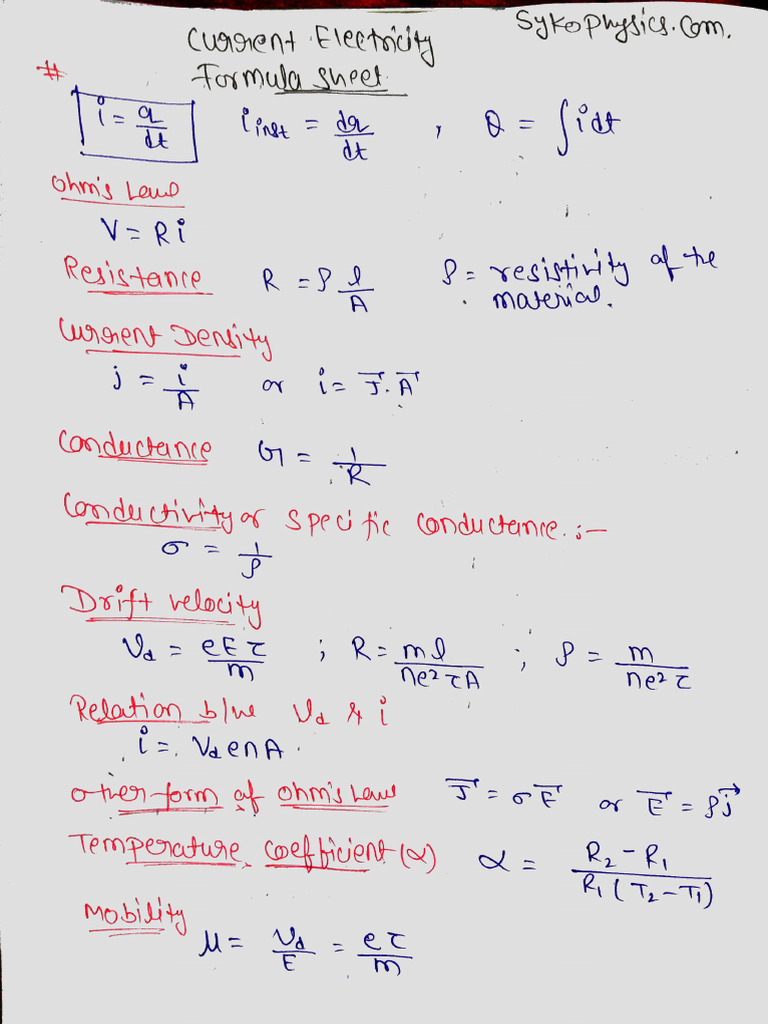 Current Electricity
Sykophysics.com.
# Formula sheet
i = q/dt  i inst = dq/dt , Q = ∫idt
Ohm's Law
V = Ri
Resistance R = ρ l/A ρ = resistivity of the
material.
Current Density
j = i/A or i = J⃗.A⃗
Conductance G = 1/R
Conductivity or specific conductance :-
σ = 1/ρ
Drift velocity
Vd = eEτ/m ; R = ml/ne²τA ; ρ = m/ne²τ
Relation b/w Vd & i
i = VdenA.
other form of ohm's Law J⃗ = σE⃗ or E⃗ = ρj⃗
Temperature coefficient (α) α = R₂-R₁/R₁(T₂-T₁)
Mobility
μ = Vd/E = eτ/m